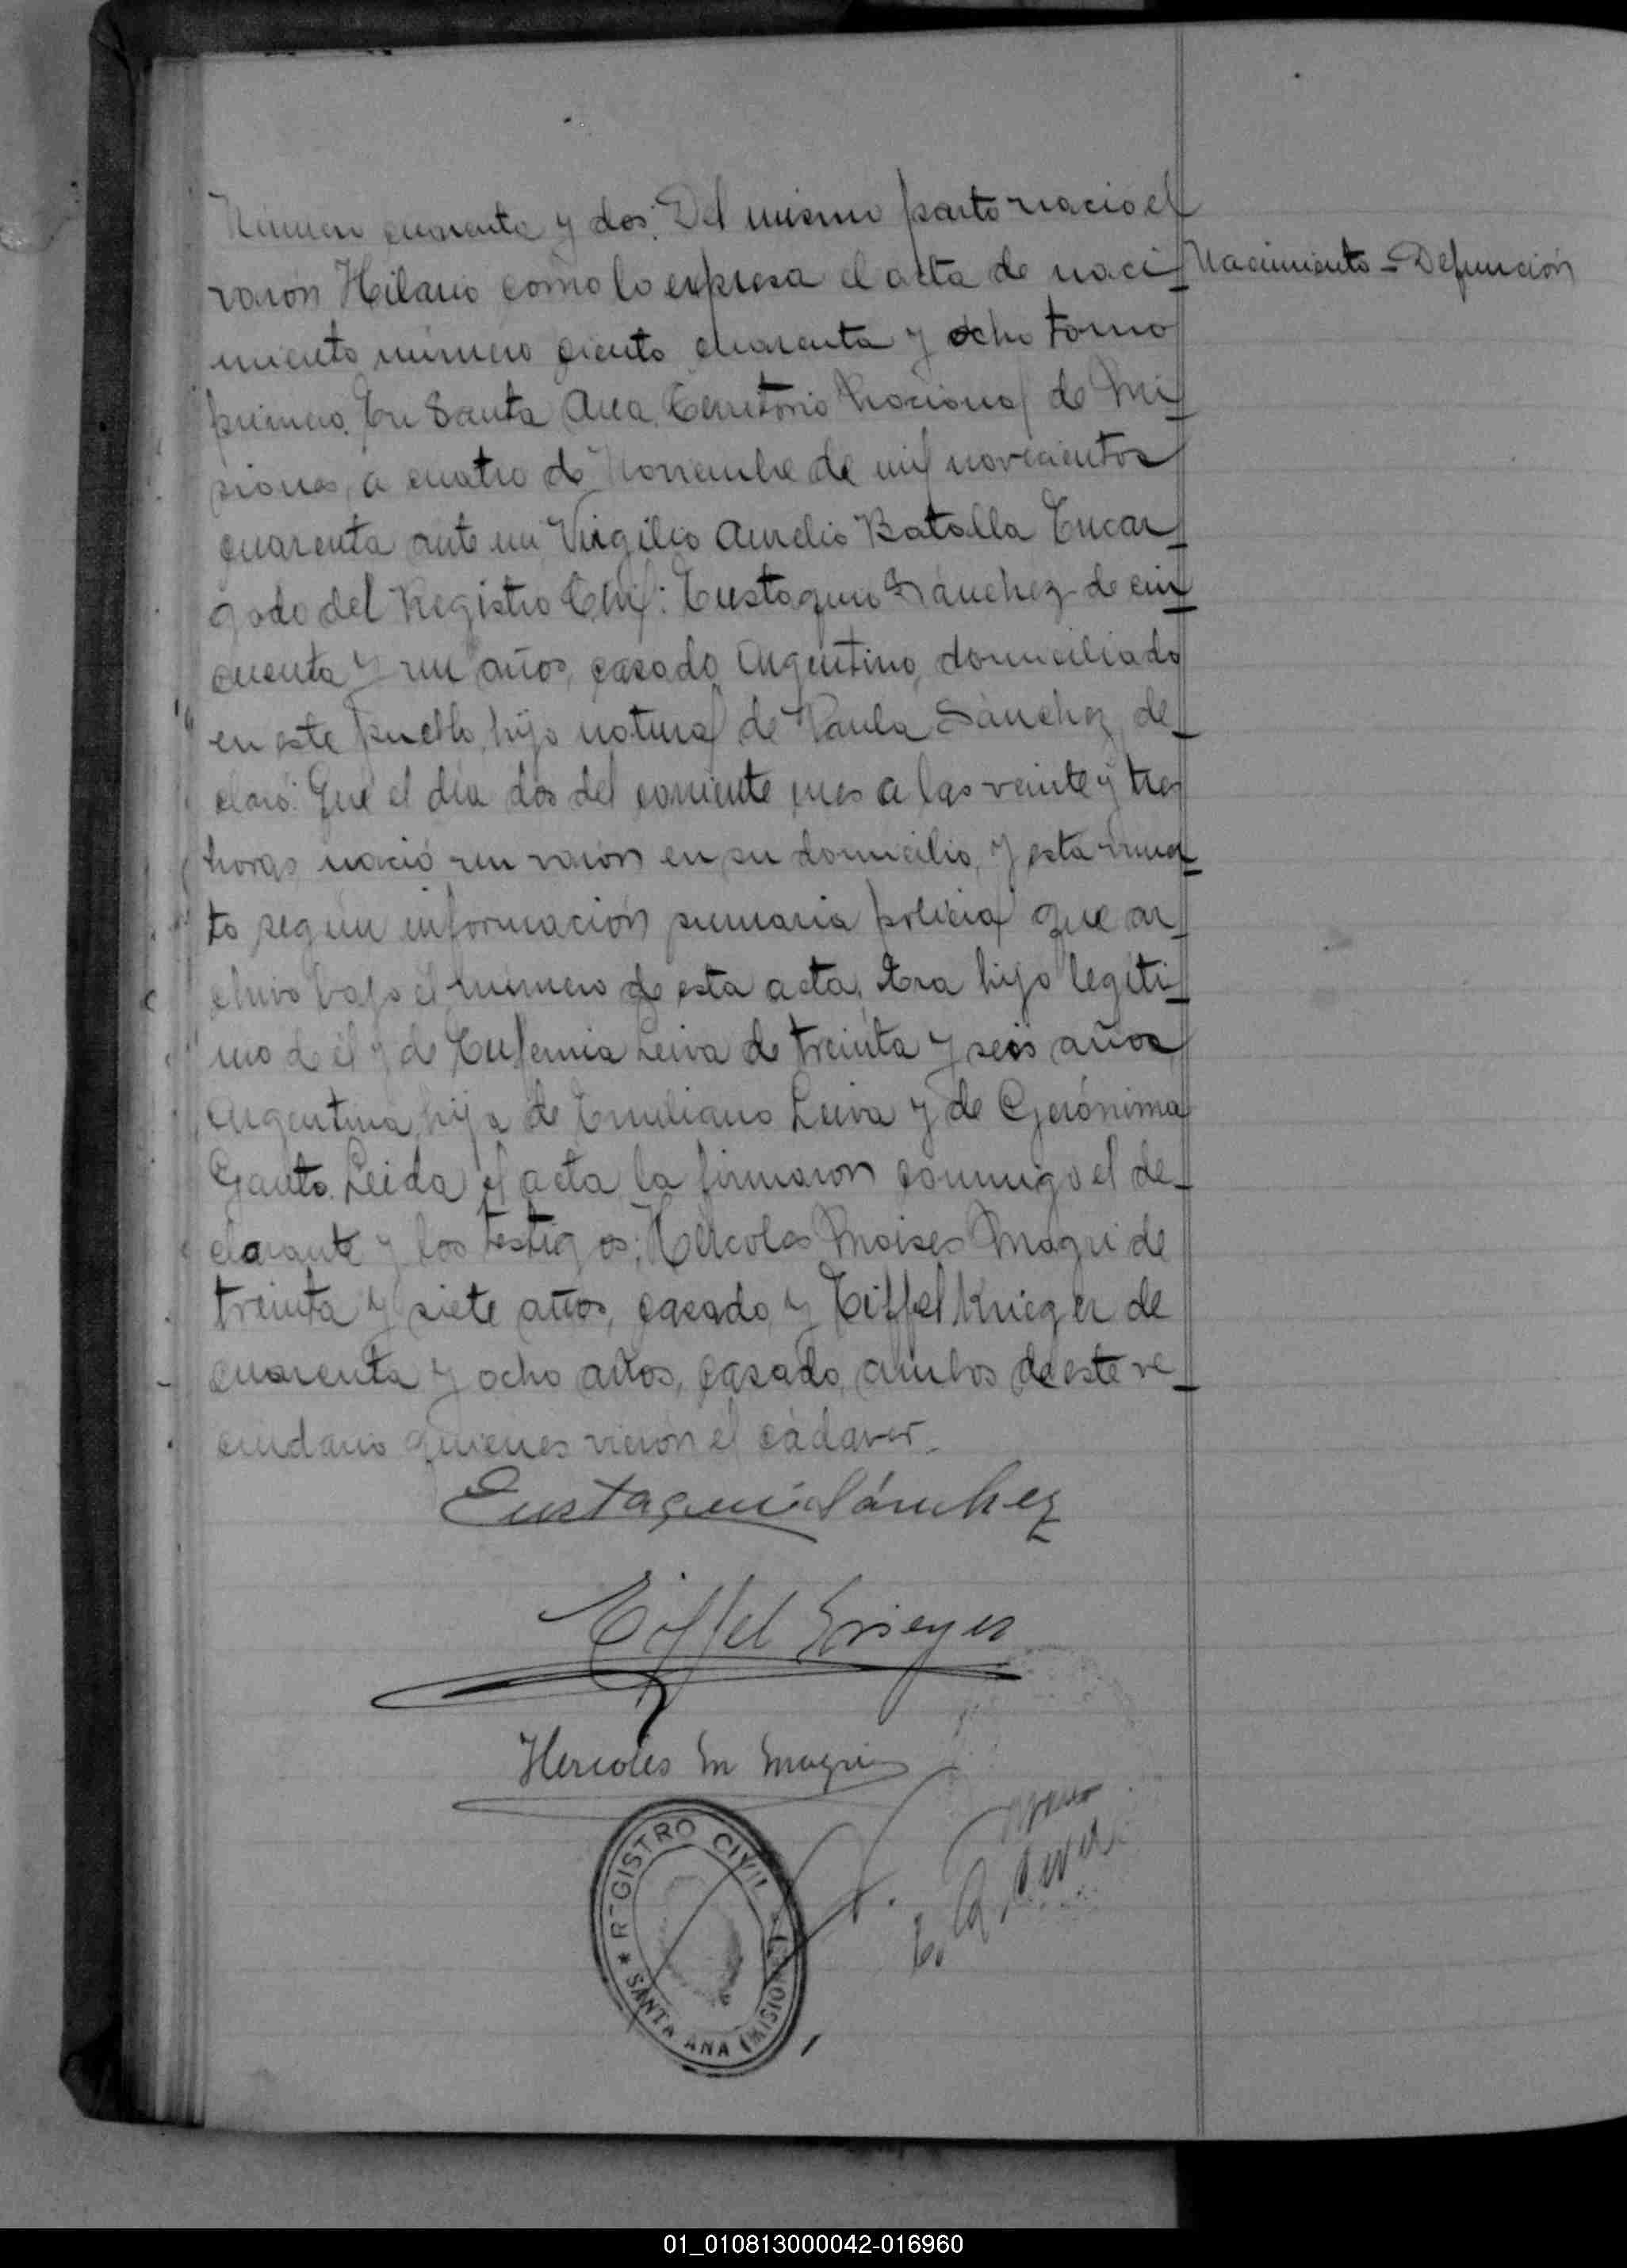 Número cuarenta y dos. Del mismo parto nació el
varón Hilario como lo expresa el acta de naci-
Nacimiento - Defunción
miento número ciento cuarenta y ocho tomo
primero. En Santa Ana Territorio Nacional de Mi-
siones, a cuatro de Noviembre de mil novecientos
cuarenta ante mi Virgilio Aurelio Batalla Encar-
gado del Registro Civil: Eustaquio Sánchez de cin-
cuenta y un años, casado, Argentino, domiciliado
en este pueblo, hijo natural de Paula Sánchez, de-
claró: Que el día dos del corriente mes a las veinte y tres
horas nació un varón en su domicilio, y esta muer-
to según información sumaria policial que ar-
chivo bajo el número de esta acta, Era hijo legiti-
mo de él y de Eufemia Leiva de treinta y seis años,
Argentina, hija de Emiliano Leiva y de Gerónima
Gauto. Leida el acta la firmaron conmigo el de-
clarante y los testigos: Hercoles Moises Magri de
treinta y siete años, casado, y Eiffel Krieger de
cuarenta y ocho años, casado, ambos de este ve-
cindario quienes vieron el cádaver.-
Eustaquio Sánchez
Eiffel Krieger
Hercoles M Magri
REGISTRO CIVIL
* SANTA ANA (MISIONES)
01_010813000042-016960